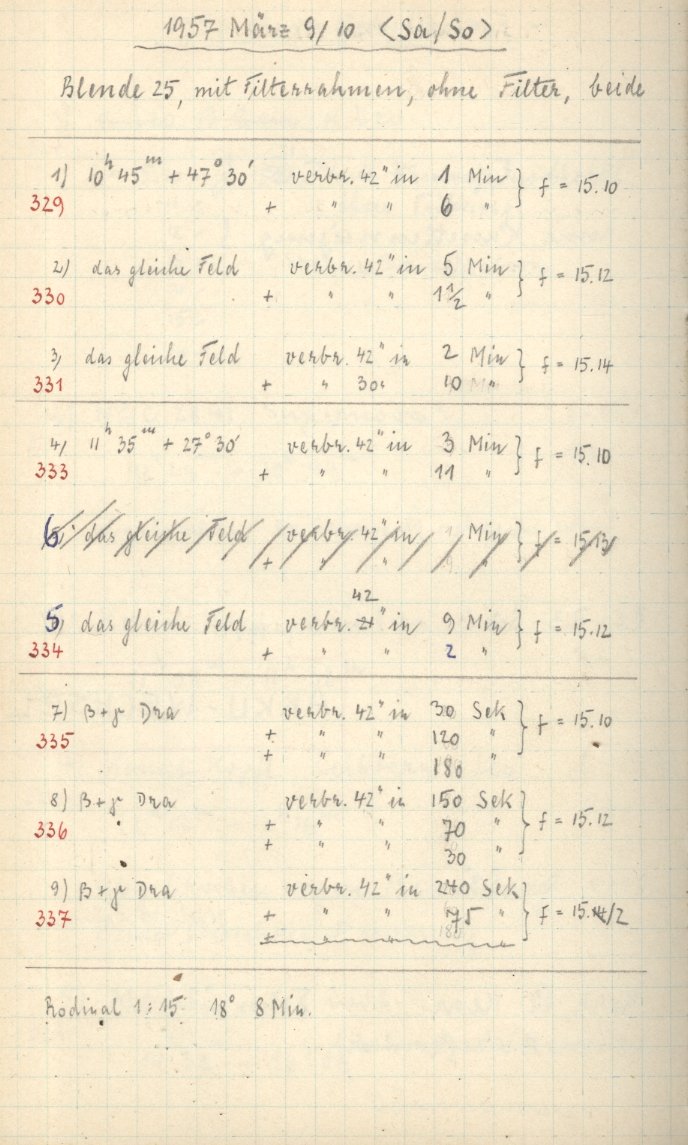 1957 März 9/10 <Sa/So>
Blende 25, mit Filterrahmen, ohne Filter, beide
1) 10ʰ 45ᵐ + 47° 30′ verbr. 42" in 1 Min } f = 15.10
329 + " " 6 "
2) das gleiche Feld verbr. 42" in 5 Min } f = 15.12
330 + " " 1 1/2 "
3) das gleiche Feld verbr. 42" in 2 Min } f = 15.14
331 + " 30" 10 "
4) 11ʰ 35ᵐ + 27° 30′ verbr. 42" in 3 Min } f = 15.10
333 + " " 11 "
6) das gleiche Feld verbr. 42" in Min } f = 15.13
+ " " "
42
5) das gleiche Feld verbr. 21" in 9 Min } f = 15.12
334 + " " 2 "
7) β+γ Dra verbr. 42" in 30 Sek } f = 15.10
335 + " " 120 "
+ " " 180 "
8) β+γ Dra verbr. 42" in 150 Sek } f = 15.12
336 + " " 70 "
+ " " 30 "
9) β+γ Dra verbr. 42" in 240 Sek } f = 15.14/2
337 + " " 75 "
+ " " 180
Rodinal 1:15 18° 8 Min.